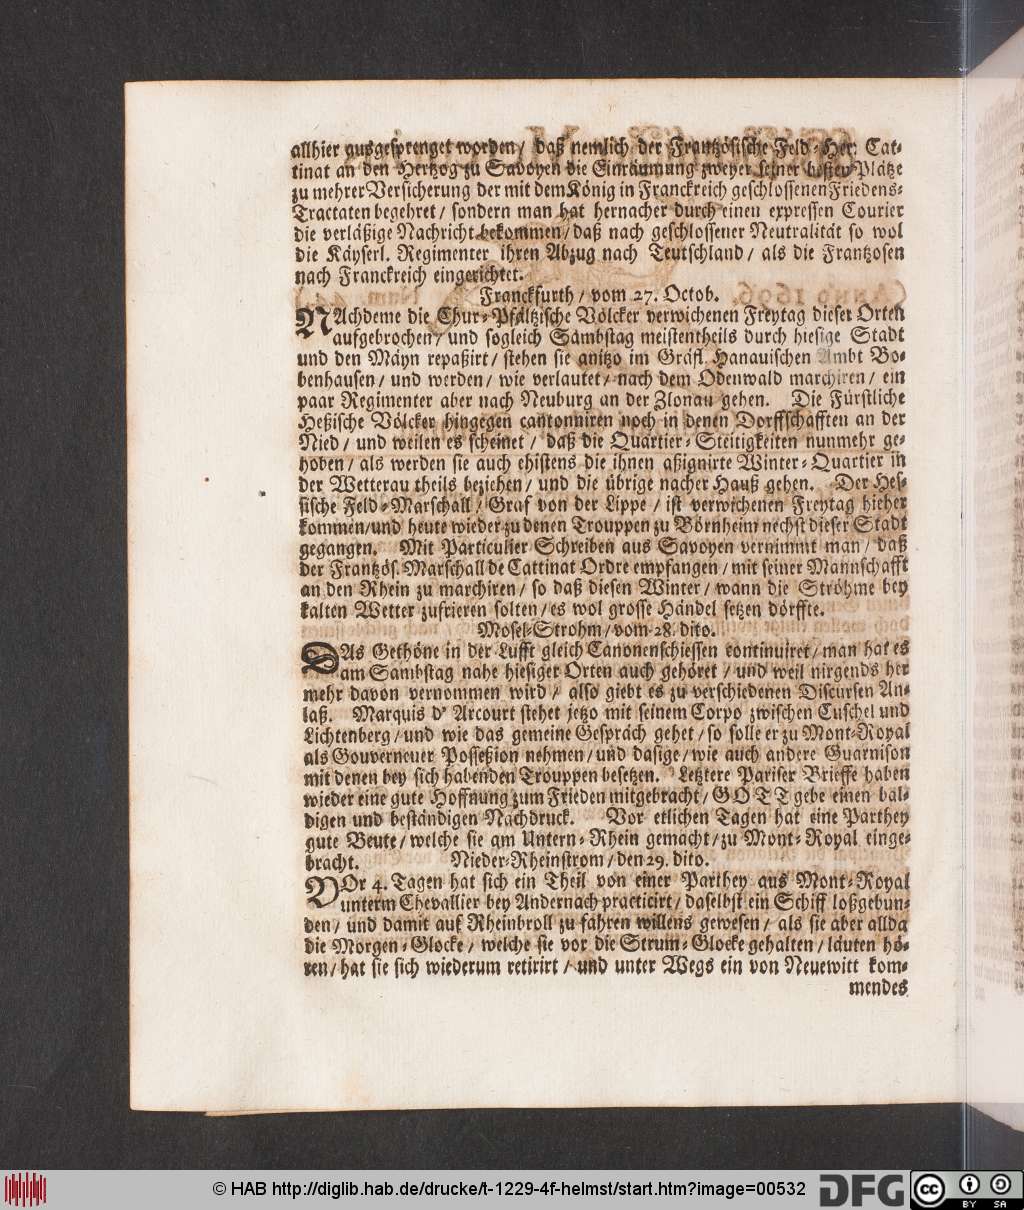 allhier ausgesprenget worden / daß nemlich der Frantzösische Feld-Her: Cat-
tinat an den Hertzog zu Savoyen die Einräumung zweyer seiner besten Plätze
zu mehrer Versicherung der mit dem König in Franckreich geschlossenen Friedens-
Tractaten begehret / sondern man hat hernacher durch einen expressen Courier
die verläßige Nachricht bekommen / daß nach geschlossener Neutralität so wol
die Käyserl. Regimenter ihren Abzug nach Teutschland / als die Frantzosen
nach Franckreich eingerichtet.
Franckfurth / vom 27. Octob.
NAchdeme die Chur-Pfältzische Völcker verwichenen Freytag dieser Orten
aufgebrochen / und sogleich Sambstag meistentheils durch hiesige Stadt
und den Mäyn repaßirt / stehen sie anitzo im Gräfl. Hanauischen Ambt Bo-
benhausen / und werden / wie verlautet / nach dem Odenwald marchiren / ein
paar Regimenter aber nach Neuburg an der Zlonau gehen. Die Fürstliche
Heßische Völcker hingegen cantonniren noch in denen Dorffschafften an der
Nied / und weilen es scheinet / daß die Quartier-Steitigkeiten nunmehr ge-
hoben / als werden sie auch ehistens die ihnen aßignirte Winter-Quartier in
der Wetterau theils beziehen / und die übrige nacher Hauß gehen. Der Hes-
sische Feld-Marschall / Graf von der Lippe / ist verwichenen Freytag hieher
kommen / und heute wieder zu denen Trouppen zu Börnheim nechst dieser Stadt
gegangen. Mit Particulier Schreiben aus Savoyen vernimmt man / daß
der Frantzös. Marschall de Cattinat Ordre empfangen / mit seiner Mannschafft
an den Rhein zu marchiren / so daß diesen Winter / wann die Ströhme bey
kalten Wetter zufrieren solten / es wol grosse Händel setzen dörffte.
Mosel-Strohm / vom 28. dito.
DAs Gethöne in der Lufft gleich Canonenschiessen continuiret / man hat es
am Sambstag nahe hiesiger Orten auch gehöret / und weil nirgends her
mehr davon vernommen wird / also giebt es zu verschiedenen Discursen An-
laß. Marquis d' Arcourt stehet jetzo mit seinem Corpo zwischen Cuschel und
Lichtenberg / und wie das gemeine Gespräch gehet / so solle er zu Mont-Royal
als Gouverneuer Posseßion nehmen / und dasige / wie auch andere Guarnison
mit denen bey sich habenden Trouppen besetzen. Letztere Pariser Brieffe haben
wieder eine gute Hoffnung zum Frieden mitgebracht / GOTT gebe einen bal-
digen und beständigen Nachdruck. Vor etlichen Tagen hat eine Parthey
gute Beute / welche sie am Untern-Rhein gemacht / zu Mont-Royal einge-
bracht. Nieder-Rheinstrom / den 29. dito.
VOr 4. Tagen hat sich ein Theil von einer Parthey aus Mont-Royal
unterm Chevallier bey Andernach practicirt / daselbst ein Schiff loßgebun-
den / und damit auf Rheinbroll zu fahren willens gewesen / als sie aber allda
die Morgen-Glocke / welche sie vor die Strum-Glocke gehalten / läuten hö-
ren / hat sie sich wiederum retirirt / und unter Wegs ein von Neuewitt kom-
mendes
© HAB http://diglib.hab.de/drucke/t-1229-4f-helmst/start.htm?image=00532
DFG
cc
BY SA